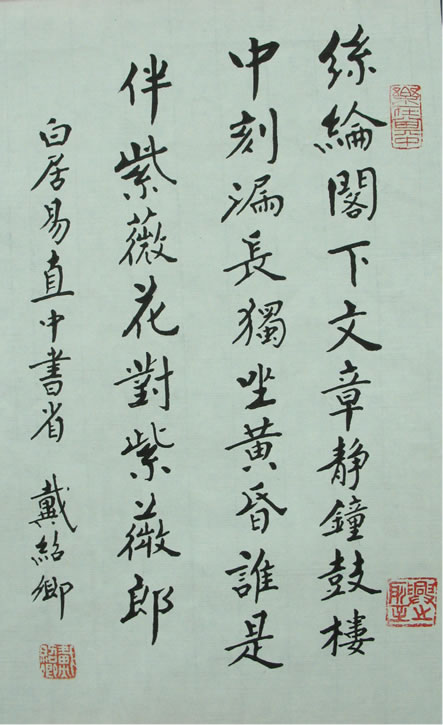 絲綸閣下文章靜鐘鼓樓
中刻漏長獨坐黄昏誰是
伴紫薇花對紫薇郎
白居易直中書省 戴紹卿